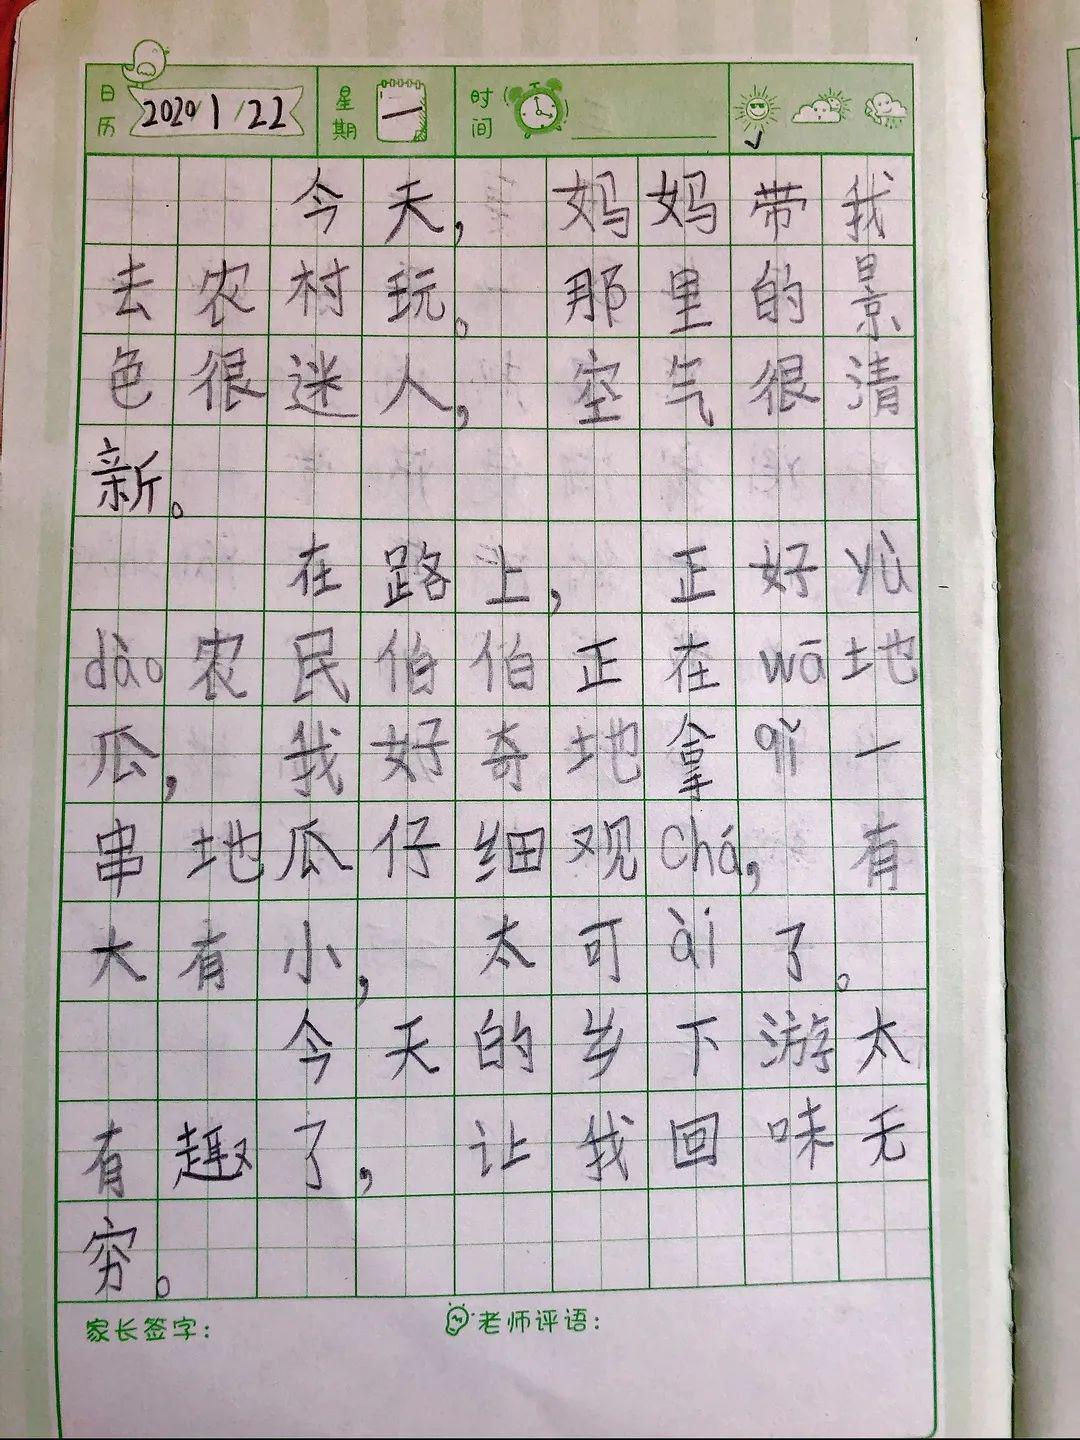 日历 2020/1/22 星期 一 时间
今天，妈妈带我
去农村玩。那里的景
色很迷人，空气很清
新。
在路上，正好yù
dào农民伯伯正在wā地
瓜，我好奇地拿qǐ一
串地瓜仔细观chá，有
大有小，太可ài了。
今天的乡下游太
有趣了，让我回味无
穷。
家长签字： 老师评语：